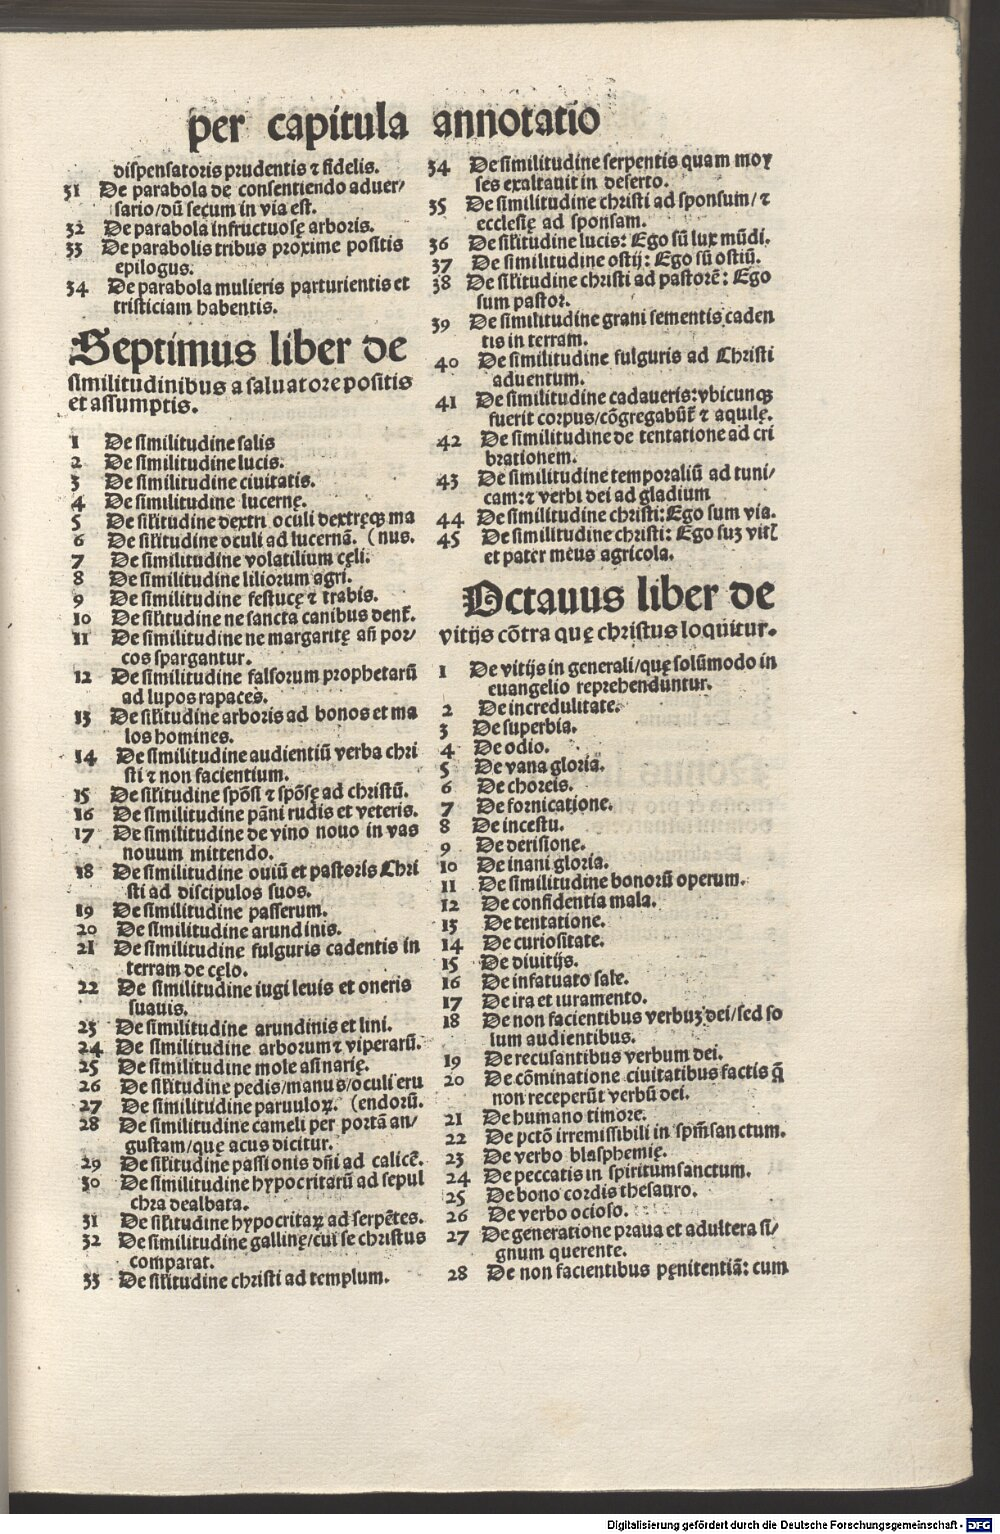 per capitula annotatio
dispensatoris prudentis ⁊ fidelis.
31 De parabola de consentiendo aduer/
sario/dū secum in via est.
32 De parabola infructuosę arboris.
33 De parabolis tribus proxime positis
epilogus.
34 De parabola mulieris parturientis et
tristiciam habentis.
Septimus liber de
similitudinibus a saluatore positis
et assumptis.
1 De similitudine salis
2 De similitudine lucis.
3 De similitudine ciuitatis.
4 De similitudine lucernę.
5 De sil̄itudine dextri oculi dextręqꝫ ma
6 De sil̄itudine oculi ad lucernā. (nus.
7 De similitudine volatilium cęli.
8 De similitudine liliorum agri.
9 De similitudine festucę ⁊ trabis.
10 De sil̄itudine ne sancta canibus dent̄.
11 De similitudine ne margaritę an̄ por/
cos spargantur.
12 De similitudine falsorum prophetarū
ad lupos rapaces.
13 De sil̄itudine arboris ad bonos et ma
los homines.
14 De similitudine audientiū verba chri
sti ⁊ non facientium.
15 De sil̄itudine spōsi ⁊ spōsę ad christū.
16 De similitudine pāni rudis et veteris.
17 De similitudine de vino nouo in vas
nouum mittendo.
18 De similitudine ouiū et pastoris Chri
sti ad discipulos suos.
19 De similitudine passerum.
20 De similitudine arundinis.
21 De similitudine fulguris cadentis in
terram de cęlo.
22 De similitudine iugi leuis et oneris
suauis.
23 De similitudine arundinis et lini.
24 De similitudine arborum ⁊ viperarū.
25 De similitudine mole asinarię.
26 De sil̄itudine pedis/manus/oculi eru
27 De similitudine paruuloꝝ. (endorū.
28 De similitudine cameli per portā an/
gustam/quę acus dicitur.
29 De sil̄itudine passionis dn̄i ad calicē.
30 De similitudine hypocritarū ad sepul
chra dealbata.
31 De sil̄itudine hypocritaꝝ ad serpētes.
32 De similitudine gallinę/cui se christus
comparat.
33 De sil̄itudine christi ad templum.
34 De similitudine serpentis quam moy
ses exaltauit in deserto.
35 De similitudine christi ad sponsum/⁊
ecclesię ad sponsam.
36 De sil̄itudine lucis: Ego sū lux mūdi.
37 De similitudine ostij: Ego sū ostiū.
38 De sil̄itudine christi ad pastorē: Ego
sum pastor.
39 De similitudine grani sementis caden
tis in terram.
40 De similitudine fulguris ad Christi
aduentum.
41 De similitudine cadaueris: vbicunqꝫ
fuerit corpus/cōgregabūt̄ ⁊ aquilę.
42 De similitudine de tentatione ad cri
brationem.
43 De similitudine temporaliū ad tuni/
cam: ⁊ verbi dei ad gladium
44 De similitudine christi: Ego sum via.
45 De similitudine christi: Ego suꝫ vit̄
et pater meus agricola.
Octauus liber de
vitijs cōtra quę christus loquitur.
1 De vitijs in generali/quę solūmodo in
euangelio reprehenduntur.
2 De incredulitate.
3 De superbia.
4 De odio.
5 De vana gloria.
6 De choreis.
7 De fornicatione.
8 De incestu.
9 De derisione.
10 De inani gloria.
11 De similitudine bonorū operum.
12 De confidentia mala.
13 De tentatione.
14 De curiositate.
15 De diuitijs.
16 De infatuato sale.
17 De ira et iuramento.
18 De non facientibus verbuꝫ dei/sed so
lum audientibus.
19 De recusantibus verbum dei.
20 De cōminatione ciuitatibus factis q̄
non receperūt verbū dei.
21 De humano timore.
22 De pctō irremissibili in spm̄ sanctum.
23 De verbo blasphemię.
24 De peccatis in spiritum sanctum.
25 De bono cordis thesauro.
26 De verbo ocioso.
27 De generatione praua et adultera si/
gnum querente.
28 De non facientibus pęnitentiā: cum
Digitalisierung gefördert durch die Deutsche Forschungsgemeinschaft - DFG